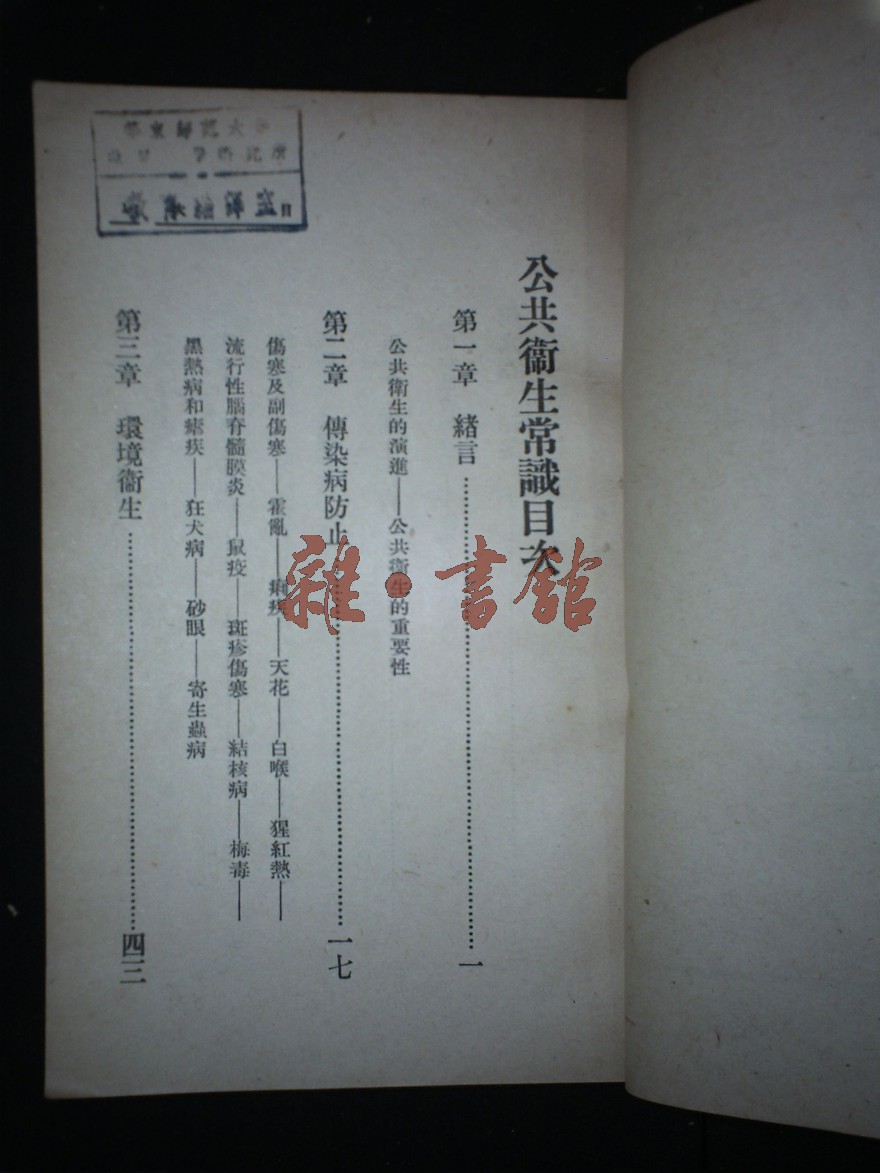 公共衞生常識目次
第一章　緒言……………………一
公共衞生的演進——公共衞生的重要性
第二章　傳染病防止……………………一七
傷寒及副傷寒——霍亂——痢疾——天花——白喉——猩紅熱——
流行性腦脊髓膜炎——鼠疫——斑疹傷寒——結核病——梅毒——
黑熱病和瘧疾——狂犬病——砂眼——寄生蟲病
第三章　環境衞生……………………四三
華東師範大學
雜·書館